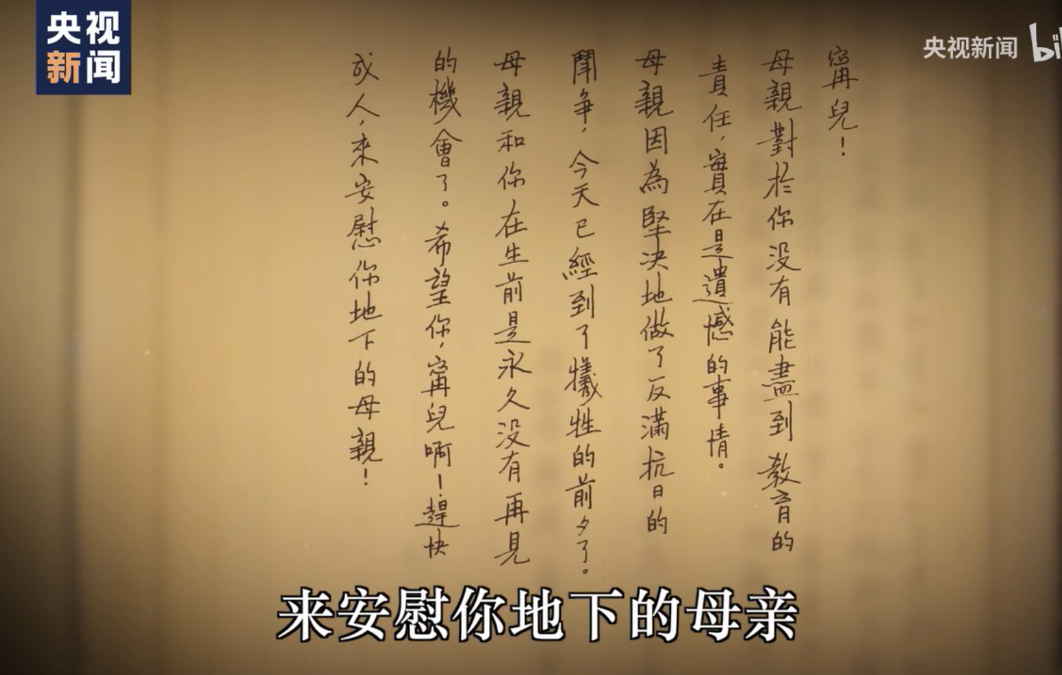 央视
新闻
央视新闻 bil
寗兒！
母親對於你没有能盡到教育的
責任，實在是遺憾的事情。
母親因為堅决地做了反滿抗日的
鬪争，今天已經到了犧牲的前夕了。
母親和你在生前是永久没有再見
的機會了。希望你，寗兒啊！趕快
成人，來安慰你地下的母親！
来安慰你地下的母亲